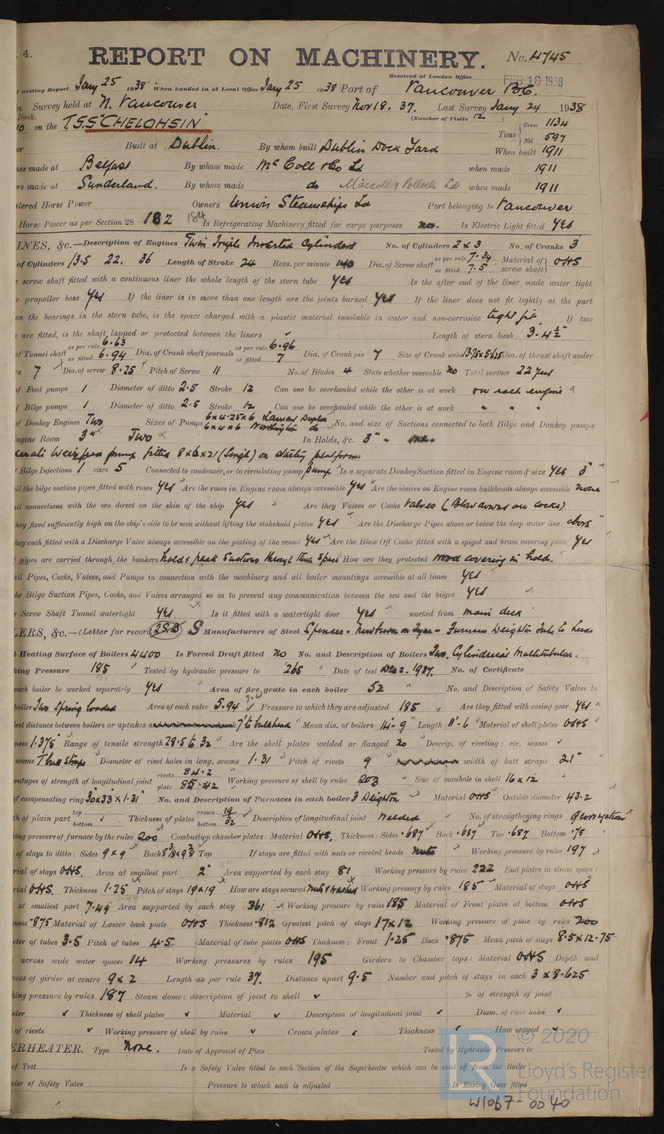 4. REPORT ON MACHINERY. No. 4745
Received at London Office FEB 18 1938
writing Report Jany 25 1938 When handed in at Local Office Jany 25 1938 Port of Vancouver B.C.
in Survey held at N. Vancouver Date, First Survey Nov 18. 37. Last Survey Jany 24 1938
Book. (Number of Visits 12
on the T.S.S "CHELOHSIN" Tons Gross 1134 Net 597
Built at Dublin. By whom built Dublin Dock Yard When built 1911
es made at Belfast By whom made McColl & Co Ld when made 1911
rs made at Sunderland. By whom made do Maccoll & Pollock Ld when made 1911
tered Horse Power Owners Union Steamships Ld Port belonging to Vancouver
Horse Power as per Section 28 182 184 Is Refrigerating Machinery fitted for cargo purposes no. Is Electric Light fitted Yes
INES, &c.—Description of Engines Twin Triple Inverted Cylinders No. of Cylinders 2 x 3 No. of Cranks 3
of Cylinders 13.5 22. 36 Length of Stroke 24 Revs. per minute 140 Dia. of Screw shaft as per rule 7.34 as fitted 7.5 Material of screw shaft OHS
screw shaft fitted with a continuous liner the whole length of the stern tube Yes Is the after end of the liner made water tight
e propeller boss Yes If the liner is in more than one length are the joints burned Yes If the liner does not fit tightly at the part
n the bearings in the stern tube, is the space charged with a plastic material insoluble in water and non-corrosive tight fit If two
are fitted, is the shaft lapped or protected between the liners Length of stern bush 3'-4½"
of Tunnel shaft as per rule 6.63 as fitted 6.94 Dia. of Crank shaft journals as per rule 6.96 as fitted 7 Dia. of Crank pin 7 Size of Crank webs 13⅞x5⅛ Dia. of thrust shaft under
rs 7 Dia. of screw 8.25 Pitch of Screw 11 No. of Blades 4 State whether moveable no Total surface 22 feet
of Feed pumps 1 Diameter of ditto 2.5 Stroke 12 Can one be overhauled while the other is at work on each engine
f Bilge pumps 1 Diameter of ditto 2.5 Stroke 12 Can one be overhauled while the other is at work " " "
of Donkey Engines Two Sizes of Pumps No. and size of Suctions connected to both Bilge and Donkey pumps
ngine Room 3" Two In Holds, &c. 3"
pump fitted 8x6x21 (Single) on starting platform
Bilge Injections 1 sizes 5 Connected to condenser, or to circulating pump pump Is a separate Donkey Suction fitted in Engine room & size Yes 3"
ll the bilge suction pipes fitted with roses Yes Are the roses in Engine room always accessible Yes Are the sluices on Engine room bulkheads always accessible none
ll connections with the sea direct on the skin of the ship Yes Are they Valves or Cocks Valves (Blowdowns are cocks)
hey fixed sufficiently high on the ship's side to be seen without lifting the stokehold plates Yes Are the Discharge Pipes above or below the deep water line above
hey each fitted with a Discharge Valve always accessible on the plating of the vessel Yes Are the Blow Off Cocks fitted with a spigot and brass covering plate Yes
pipes are carried through the bunkers hold & peak suctions through How are they protected wood covering in hold.
ll Pipes, Cocks, Valves, and Pumps in connection with the machinery and all boiler mountings accessible at all times Yes
he Bilge Suction Pipes, Cocks, and Valves arranged so as to prevent any communication between the sea and the bilges Yes
Screw Shaft Tunnel watertight Yes Is it fitted with a watertight door Yes worked from main deck
LERS, &c.—(Letter for record S Manufacturers of Steel Spencers - Newburn on Tyne - Furnaces Deighton Leeds
Heating Surface of Boilers 4400 Is Forced Draft fitted no No. and Description of Boilers Two. Cylindrical Multitubular.
king Pressure 185 Tested by hydraulic pressure to 265 Date of test Dec 2. 1937. No. of Certificate
each boiler be worked separately Yes Area of fire grate in each boiler 52 No. and Description of Safety Valves to
boiler Two Spring loaded Area of each valve 5.94 Pressure to which they are adjusted 185 Are they fitted with easing gear Yes
est distance between boilers or uptakes and bulkhead Mean dia. of boilers 14'-9" Length 11'-6 Material of shell plates OHS
ness 1.375 Range of tensile strength 28.5 to 32 Are the shell plates welded or flanged no Descrip. of riveting: cir. seams
seams Butt Straps Diameter of rivet holes in long. seams 1.31 Pitch of rivets 9 width of butt straps 21"
entages of strength of longitudinal joint rivets 84.2 plate 85.42 Working pressure of shell by rules 203 Size of manhole in shell 16 x 12
of compensating ring 30x33x1.31 No. and Description of Furnaces in each boiler 3 Deighton Material OHS Outside diameter 43.2
th of plain part top bottom Thickness of plates crown bottom 19/32 Description of longitudinal joint welded No. of strengthening rings
ing pressure of furnace by the rules 200 Combustion chamber plates: Material OHS. Thickness: Sides .687 Back .687 Top .687 Bottom .75
of stays to ditto: Sides 9x9 Back Top If stays are fitted with nuts or riveted heads Nuts Working pressure by rules 197
rial of stays OHS. Area at smallest part 2" Area supported by each stay 81 Working pressure by rules 222 End plates in steam space:
rial OHS. Thickness 1.25 Pitch of stays 19x19 How are stays secured Nuts & washers Working pressure by rules 185 Material of stays OHS
at smallest part 7.49 Area supported by each stay 361 Working pressure by rules 185 Material of Front plates at bottom OHS
ness .875 Material of Lower back plate OHS Thickness .812 Greatest pitch of stays 17x12 Working pressure of plate by rules 200
eter of tubes 3.5 Pitch of tubes 4.5 Material of tube plates OHS Thickness: Front 1.25 Back .875 Mean pitch of stays 8.5x12.75
across wide water spaces 14 Working pressures by rules 195 Girders to Chamber tops: Material OHS Depth and
ness of girder at centre 9x2 Length as per rule 37. Distance apart 9.5 Number and pitch of stays in each 3 x 8.625
king pressure by rules 187 Steam dome: description of joint to shell % of strength of joint
eter Thickness of shell plates Material Description of longitudinal joint Diam. of rivet holes
of rivets Working pressure of shell by rules Crown plates Thickness How stayed
ERHEATER. Type None. Date of Approval of Plan Tested by Hydraulic Pressure to
of Test Is a Safety Valve fitted to each Section of the Superheater which can be shut off from the Boiler
eter of Safety Valve Pressure to which each is adjusted Is Easing Gear fitted
© 2020
Lloyd's Register
Foundation
W1067-0040